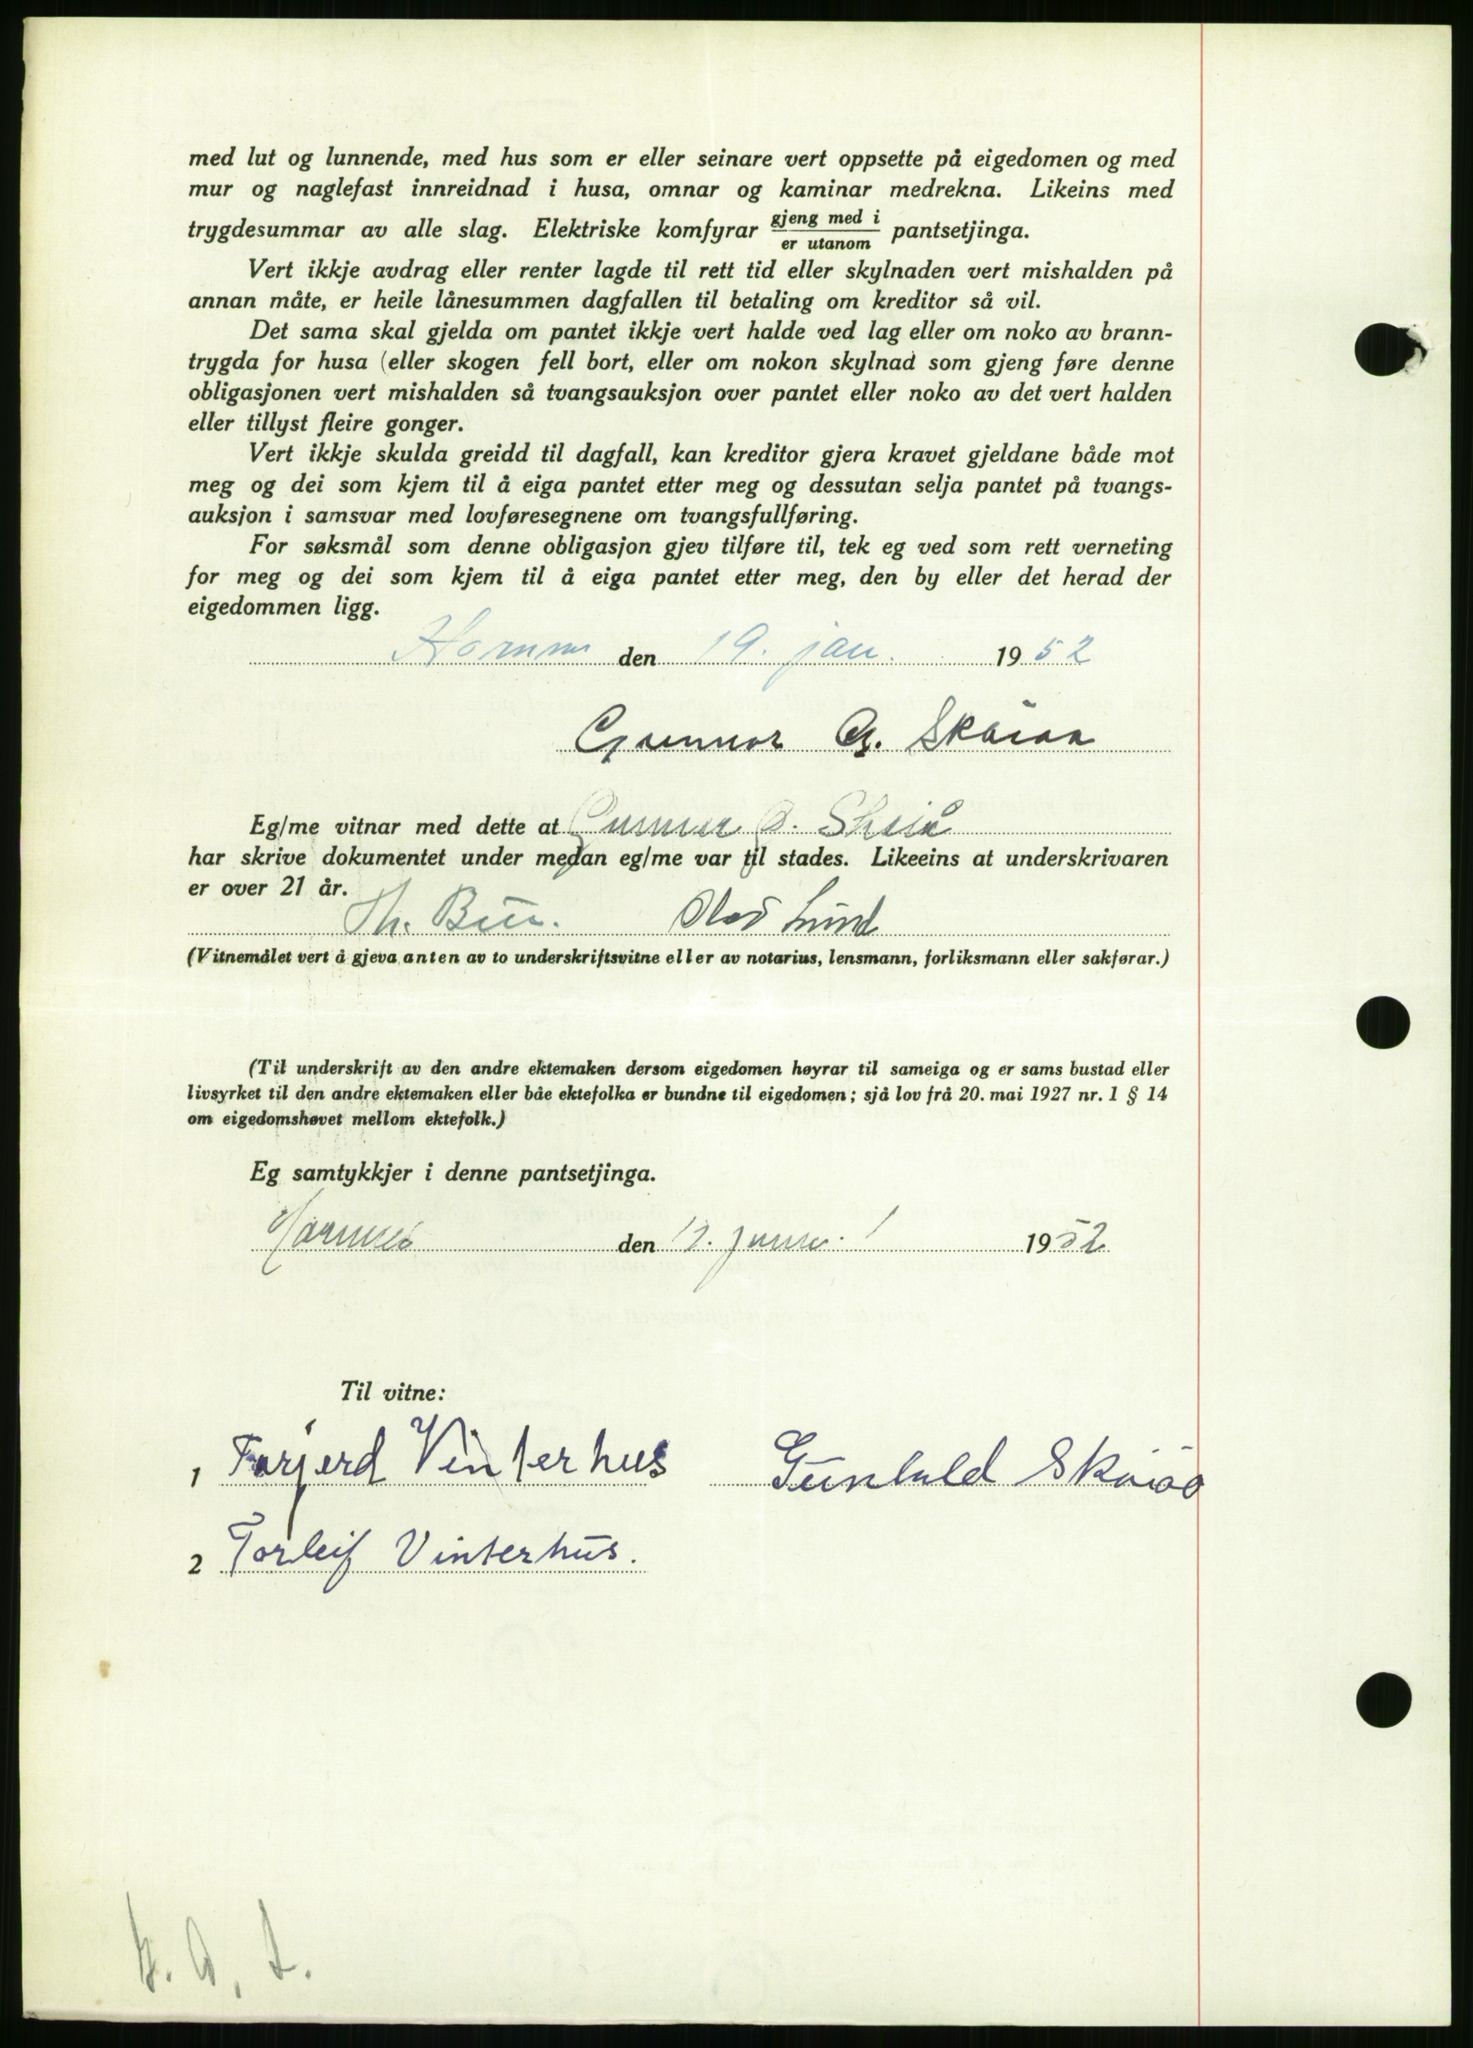 med lut og lunnende, med hus som er eller seinare vert oppsette på eigedomen og med
mur og naglefast innreidnad i husa, omnar og kaminar medrekna. Likeins med
trygdesummar av alle slag. Elektriske komfyrar gjeng med i / er utanom pantsetjinga.
Vert ikkje avdrag eller renter lagde til rett tid eller skylnaden vert mishalden på
annan måte, er heile lånesummen dagfallen til betaling om kreditor så vil.
Det sama skal gjelda om pantet ikkje vert halde ved lag eller om noko av brann-
trygda for husa (eller skogen fell bort, eller om nokon skylnad som gjeng føre denne
obligasjonen vert mishalden så tvangsauksjon over pantet eller noko av det vert halden
eller tillyst fleire gonger.
Vert ikkje skulda greidd til dagfall, kan kreditor gjera kravet gjeldane både mot
meg og dei som kjem til å eiga pantet etter meg og dessutan selja pantet på tvangs-
auksjon i samsvar med lovføresegnene om tvangsfullføring.
For søksmål som denne obligasjon gjev tilføre til, tek eg ved som rett verneting
for meg og dei som kjem til å eiga pantet etter meg, den by eller det herad der
eigedommen ligg.
den 19. jan. 1952
Gunnar G. Skåiaa
Eg/me vitnar med dette at Gunnar G. Skeiå
har skrive dokumentet under medan eg/me var til stades. Likeeins at underskrivaren
er over 21 år.
Th. Olav Lund
(Vitnemålet vert å gjeva anten av to underskriftsvitne eller av notarius, lensmann, forliksmann eller sakførar.)
(Til underskrift av den andre ektemaken dersom eigedomen høyrar til sameiga og er sams bustad eller
livsyrket til den andre ektemaken eller båe ektefolka er bundne til eigedomen; sjå lov frå 20. mai 1927 nr. 1 § 14
om eigedomshøvet mellom ektefolk.)
Eg samtykkjer i denne pantsetjinga.
Hornnes den januar 1952
Til vitne:
1 Torgerd Vinterhus Gunhild Skåiåå
2 Torleif Vinterhus.